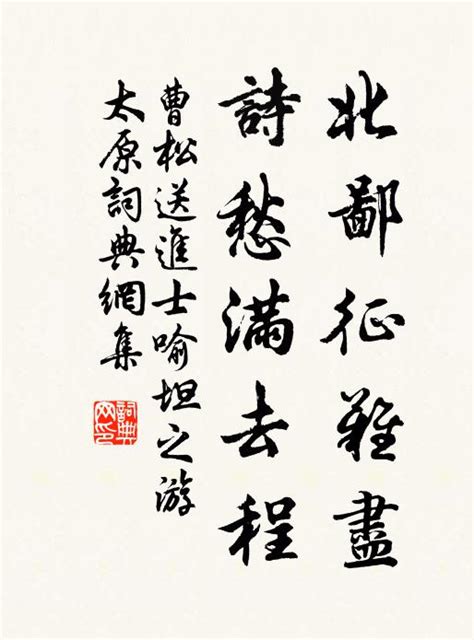 北鄙征難盡
詩愁滿去程
曹松送進士喻坦之游
太原詞典網集
詞典
网印